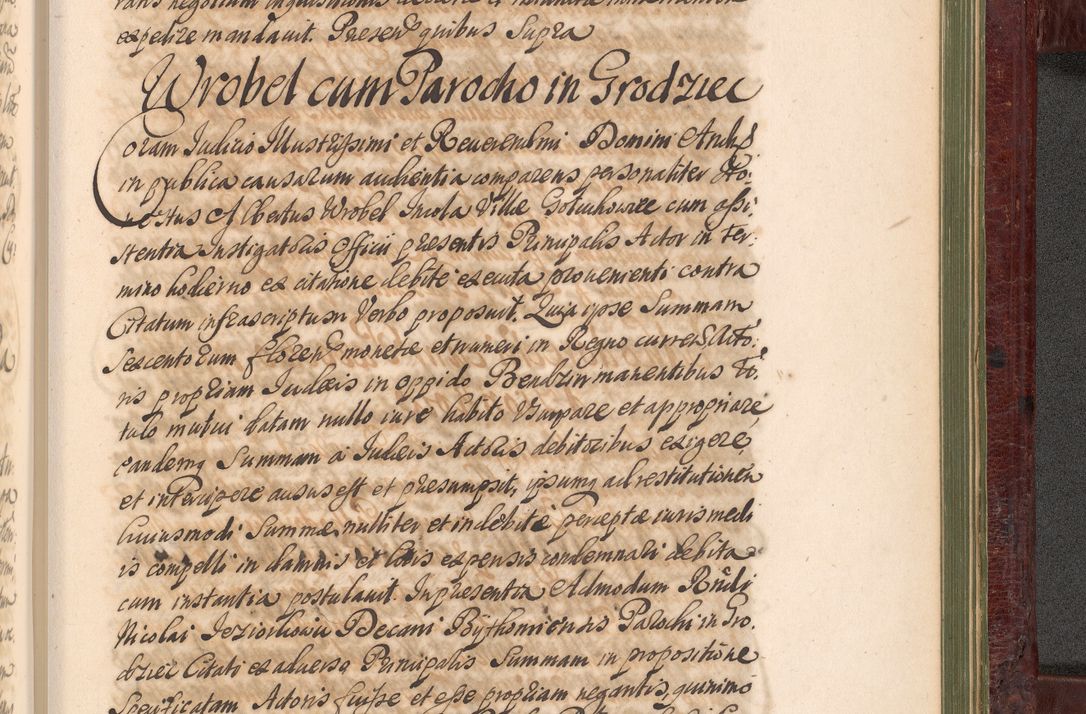 expedire mandavit. Presen. quibus Supra
Wrobel cum Parocho in Grodziec
Coram Iudicio Illustrissimi et Reverendmi Domini
in publica causarum audientia comparens personaliter Ho:
nestus Albertus Wrobel Incola Villæ cum assi:
stentia Instigatoris Officii presentis Principalis Actor in Ter:
mino hodierno ex citatione debite executa provenienti contra
Citatum infrascriptum Verbo proposuit. Quia ipse Summam
Sexcentorum floren. monetæ et numeri in Regno curren. Acto:
ris propriam Iudæis in oppido Bendzin manentibus ti:
tulo mutui datam nullo iure habito Usurpare et appropriare,
eandemq Summam a Iudæis Actoris debitoribus exigere,
et intercipere ausus est et presumpsit, ipsumq ad restitutionem
huiusmodi Summæ nulliter et indebite perceptæ iuris medi
is compelli in damnis et litis expensis condemnari debita
cum instantia postulavit. In presentia Admodum Rndi
Nicolai Decani Bythomiensis Parochi in Gro:
dziec Citati ex adverso Principalis Summam in propositione
Specificatam Actoris fuisse et esse propriam negantis, quinimo